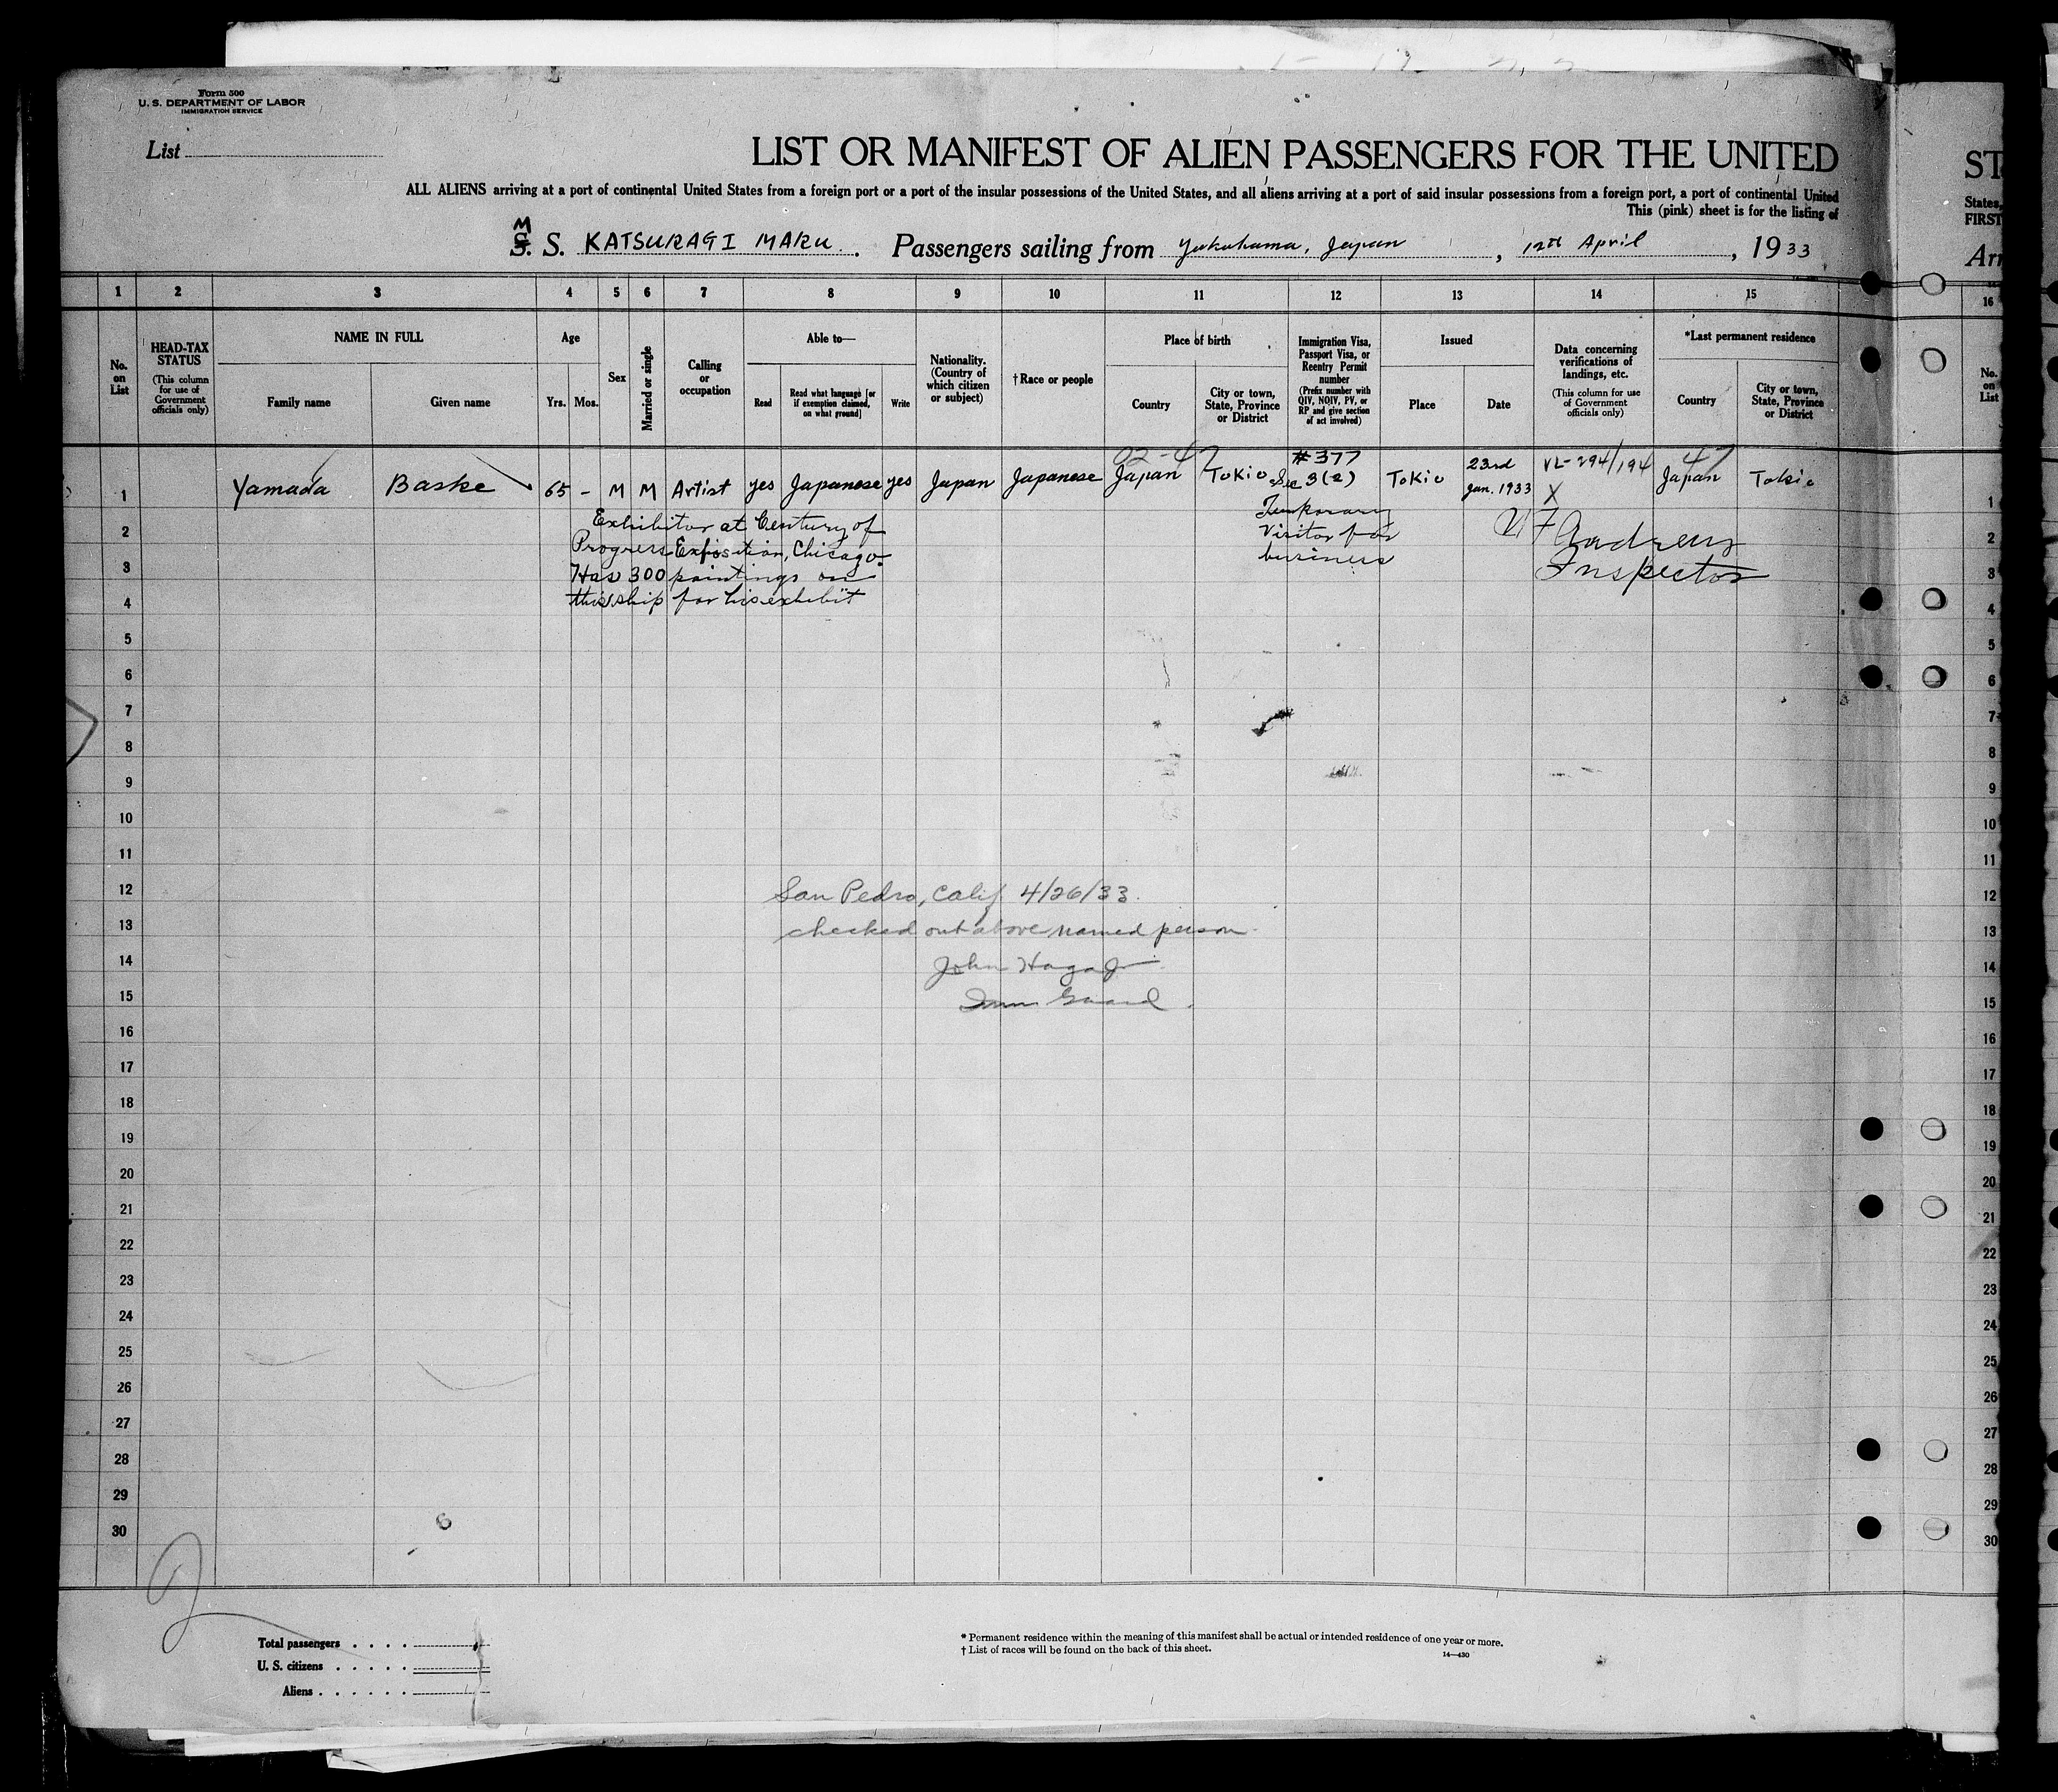 Form 500
U. S. DEPARTMENT OF LABOR
IMMIGRATION SERVICE
List
LIST OR MANIFEST OF ALIEN PASSENGERS FOR THE UNITED
ST
ALL ALIENS arriving at a port of continental United States from a foreign port or a port of the insular possessions of the United States, and all aliens arriving at a port of said insular possessions from a foreign port, a port of continental United
States,
This (pink) sheet is for the listing of
FIRST
M
S. S. KATSURAGI MARU. Passengers sailing from Yokohama, Japan, 12th April, 1933
Arr
1 2 3 4 5 6 7 8 9 10 11 12 13 14 15 16
No. on List
HEAD-TAX STATUS
(This column for use of Government officials only)
NAME IN FULL
Family name
Given name
Age
Yrs.
Mos.
Sex
Married or single
Calling or occupation
Able to—
Read
Read what language [or if exemption claimed, on what ground]
Write
Nationality. (Country of which citizen or subject)
†Race or people
Place of birth
Country
City or town, State, Province or District
Immigration Visa, Passport Visa, or Reentry Permit number
(Prefix number with QIV, NQIV, PV, or RP and give section of act involved)
Issued
Place
Date
Data concerning verifications of landings, etc.
(This column for use of Government officials only)
*Last permanent residence
Country
City or town, State, Province or District
No. on List
02-47
#377
23rd
VL-294/194
47
1 Yamada Baske 65 - M M Artist yes Japanese yes Japan Japanese Japan Tokio Sec 3(2) Tokio Jan. 1933 X Japan Tokio 1
Exhibitor at Century of
Progress Exposition, Chicago.
Has 300 paintings on
this ship for his exhibit
Temporary
Visitor for
business
Andrews
Inspector
2 2
3 3
4 4
5 5
6 6
7 7
8 8
9 9
10 10
11 11
12 San Pedro, Calif 4/26/33. 12
13 checked out above named person. 13
14 John Haga Jr 14
15 Imm Guard. 15
16 16
17 17
18 18
19 19
20 20
21 21
22 22
23 23
24 24
25 25
26 26
27 27
28 28
29 29
30 6 30
Total passengers
U. S. citizens
Aliens
* Permanent residence within the meaning of this manifest shall be actual or intended residence of one year or more.
† List of races will be found on the back of this sheet.
14—430